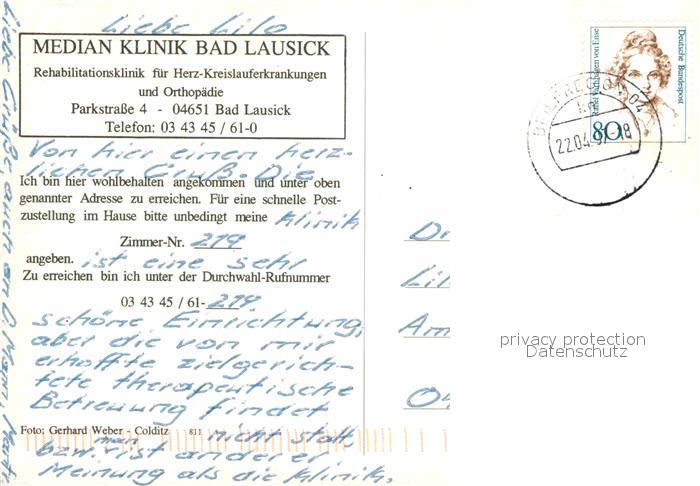 Liebe Lilo
MEDIAN KLINIK BAD LAUSICK
Rehabilitationsklinik für Herz-Kreislauferkrankungen
und Orthopädie
Parkstraße 4 - 04651 Bad Lausick
Telefon: 03 43 45 / 61-0
Von hier einen herz-
lichen Gruß. Die
Ich bin hier wohlbehalten angekommen und unter oben
genannter Adresse zu erreichen. Für eine schnelle Post-
zustellung im Hause bitte unbedingt meine Klinik
Zimmer-Nr. 219
angeben. ist eine sehr
Zu erreichen bin ich unter der Durchwahl-Rufnummer
03 43 45 / 61- 219
schöne Einrichtung,
aber die von mir
erhoffte zielgerich-
tete therapeutische
Betreuung findet
Foto: Gerhard Weber - Colditz 811
nicht statt
bzw. man ist anderer
Meinung als die Klinik.
Liebe Grüße auch an D. Mann,
Deutsche Bundespost
Rahel Varnhagen von Ense
80
22.04.97-18
Lil
Am
privacy protection
Datenschutz